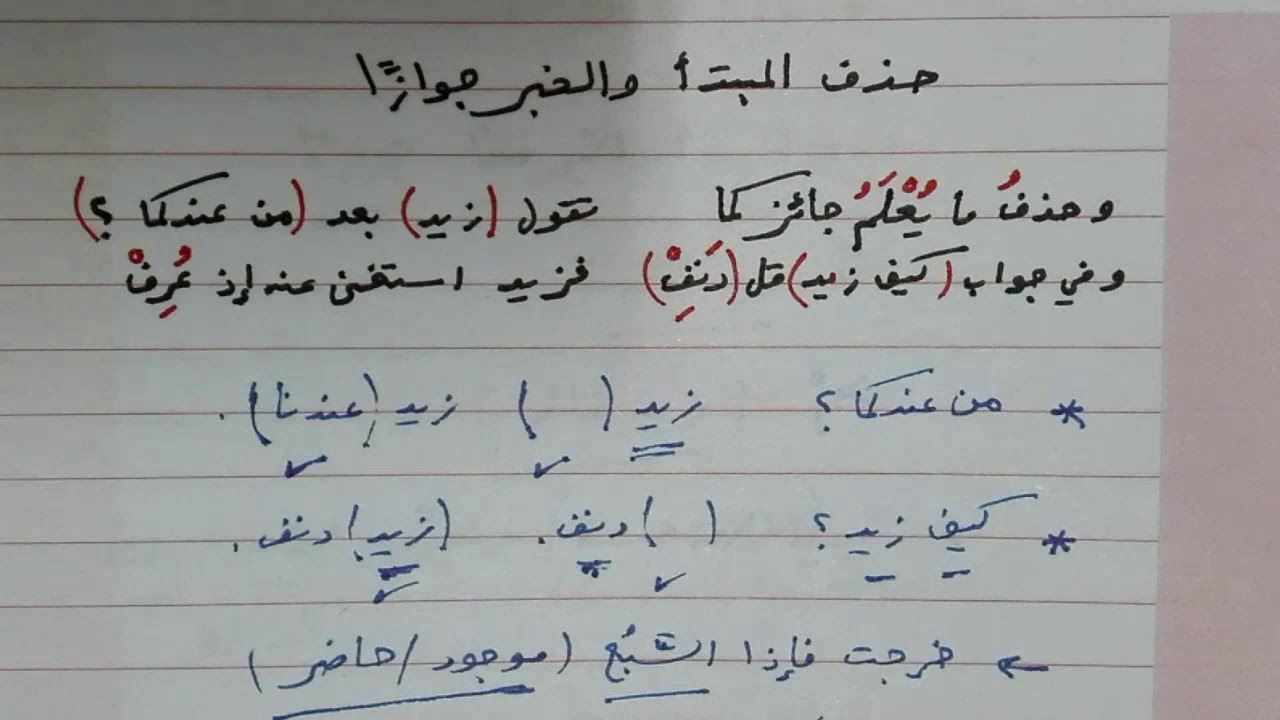 حذف المبتدأ والخبر جوازًا
وحذفُ ما يُعْلَمُ جائز كما تقول (زيد) بعد (من عندكما ؟)
وفي جواب (كيف زيد) قل (دَنِفْ) فزيد استغنى عنه إذ عُرِفْ
* من عندكما ؟ زيد ( ) زيد (عندنا) .
* كيف زيد ؟ ( ) دنف . (زيد) دنف .
← خرجت فإذا السَّبُع (موجود / حاضر)